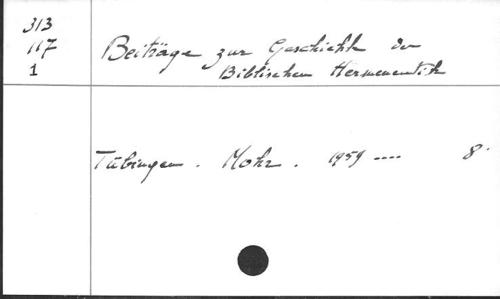 313
117
1
Beiträge zur Geschichte der
Biblischen Hermeneutik
Tübingen . Mohr . 1959 .... 8°